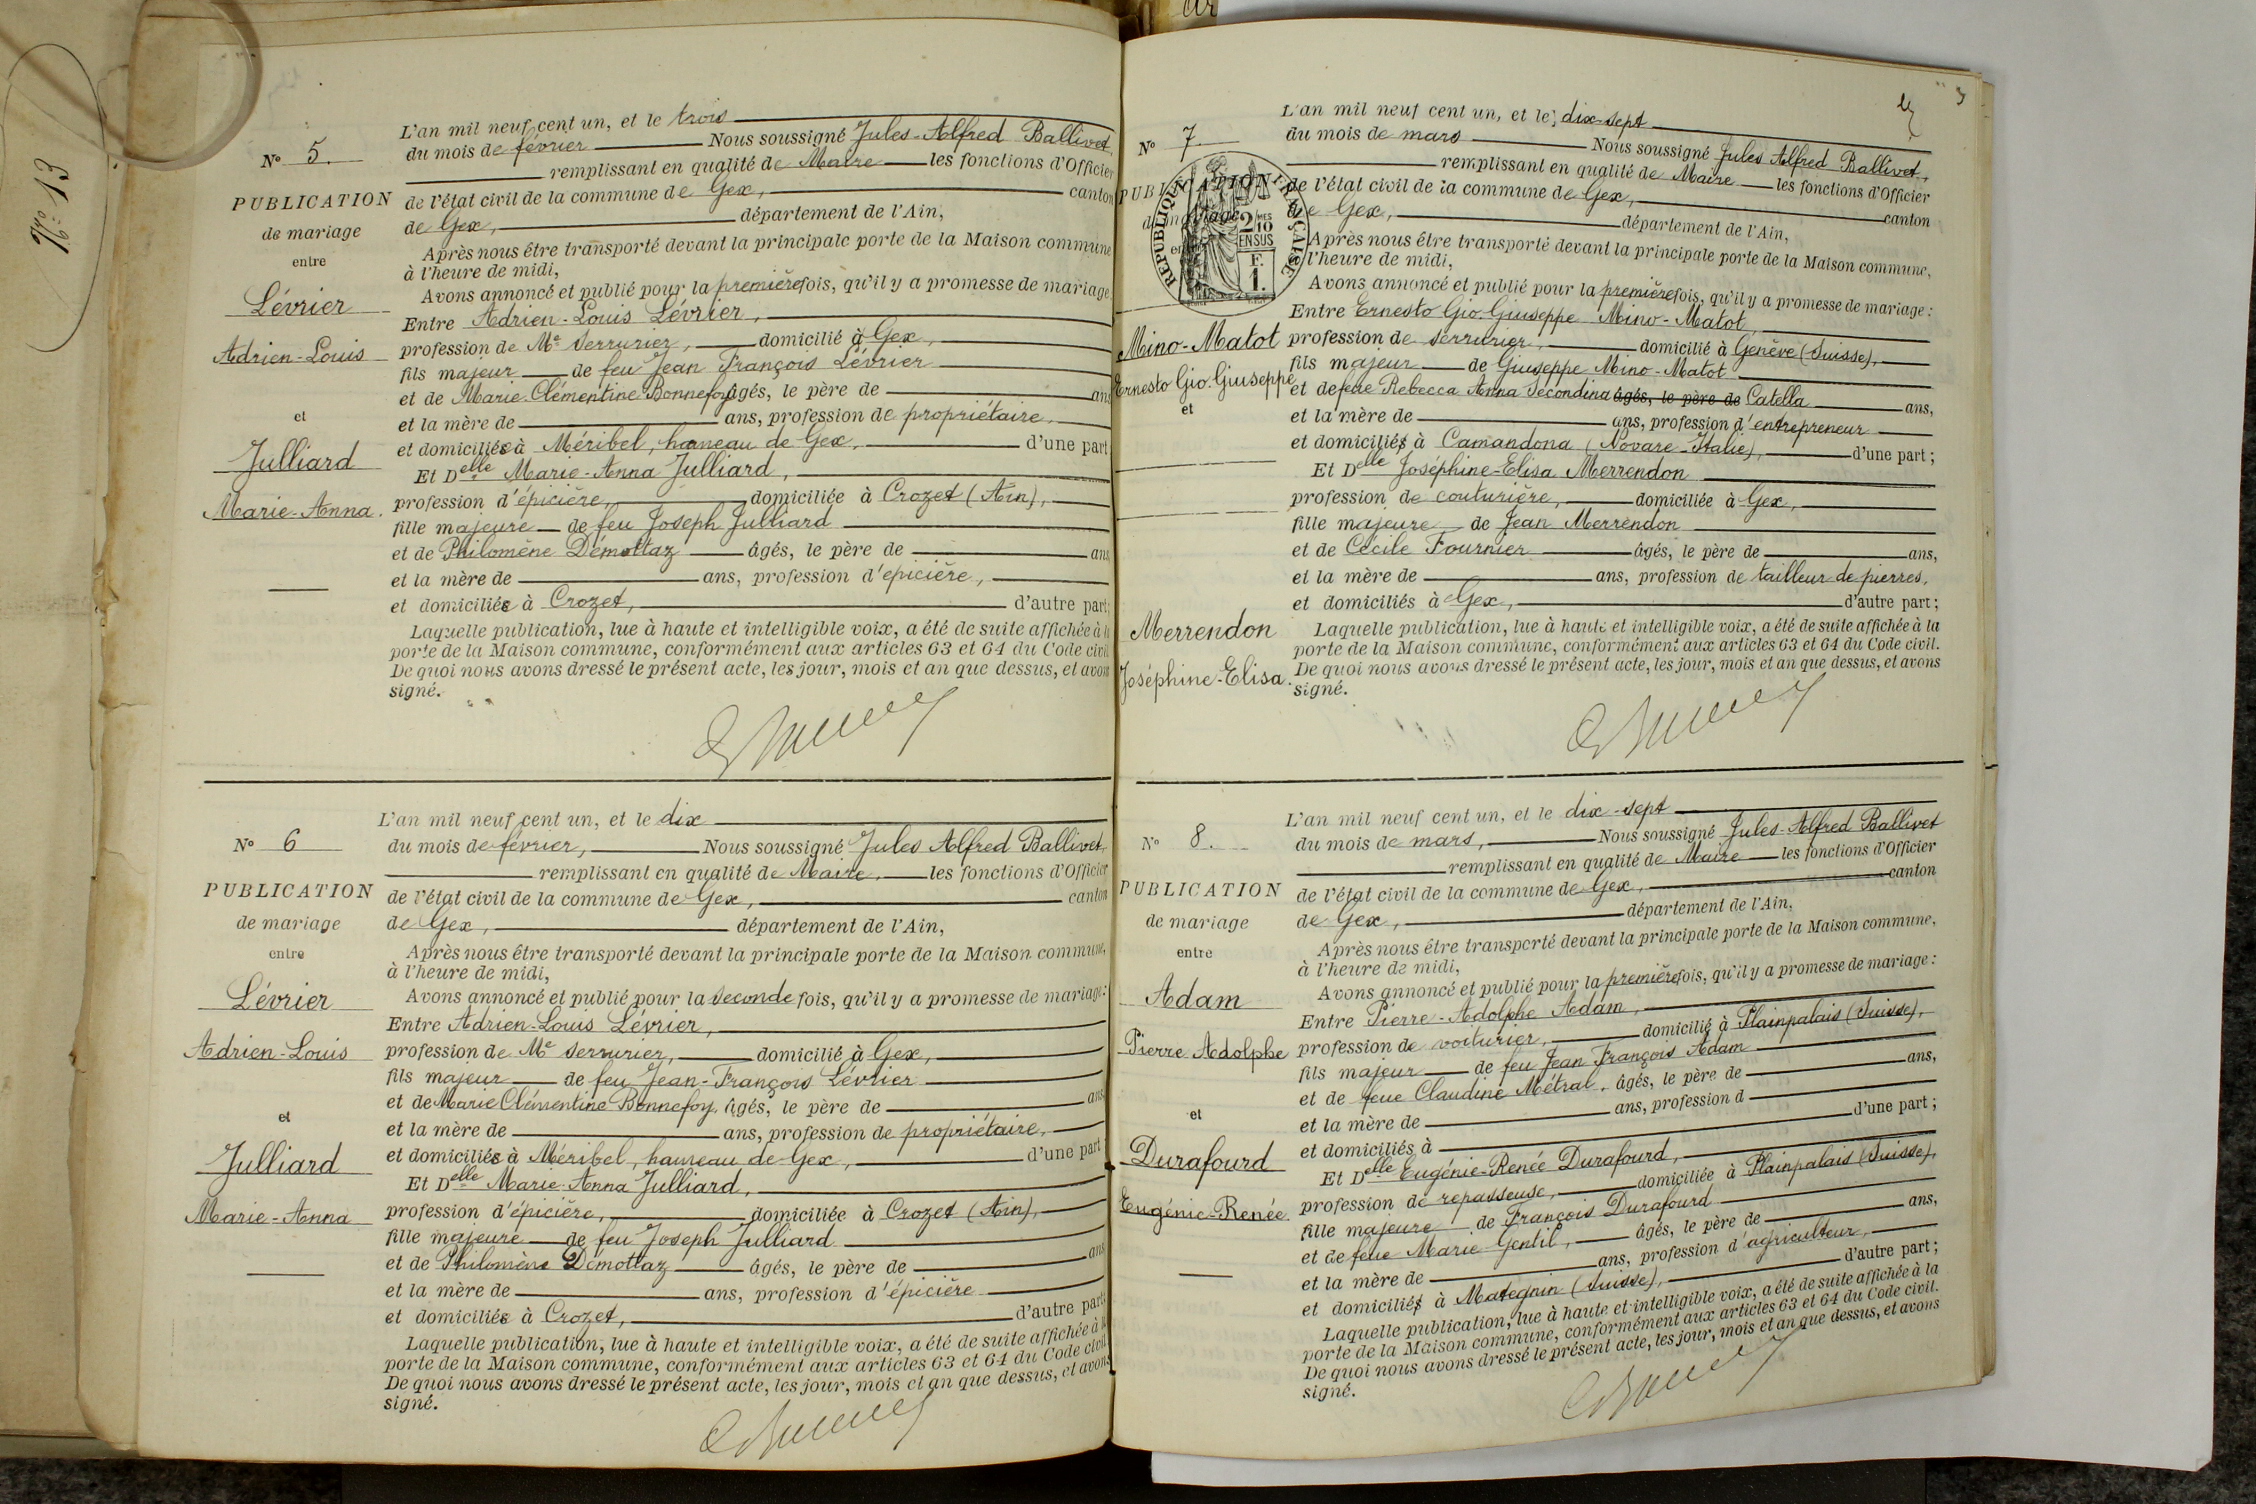 N.º 13
N.º 5.
PUBLICATION
de mariage
entre
Lévrier
Adrien-Louis
et
Julliard
Marie-Anna.
L'an mil neuf cent un, et le trois
du mois de février Nous soussigné Jules-Alfred Ballivet,
remplissant en qualité de Maire les fonctions d'Officier
de l'état civil de la commune de Gex, canton
de Gex, département de l'Ain,
Après nous être transporté devant la principale porte de la Maison commune
à l'heure de midi,
Avons annoncé et publié pour la première fois, qu'il y a promesse de mariage
Entre Adrien-Louis Lévrier,
profession de Me serrurier, domicilié à Gex,
fils majeur de feu Jean François Lévrier
et de Marie-Clémentine Bonnefoy âgés, le père de ans
et la mère de ans, profession de propriétaire,
et domiciliés à Méribel, hameau de Gex, d'une part
Et Delle Marie-Anna Julliard,
profession d'épicière, domiciliée à Crozet (Ain),
fille majeure de feu Joseph Julliard
et de Philomène Démottaz âgés, le père de ans
et la mère de ans, profession d'épicière,
et domiciliés à Crozet, d'autre part;
Laquelle publication, lue à haute et intelligible voix, a été de suite affichée à la
porte de la Maison commune, conformément aux articles 63 et 64 du Code civil
De quoi nous avons dressé le présent acte, les jour, mois et an que dessus, et avons
signé.
N° 6
PUBLICATION
de mariage
entre
Lévrier
Adrien-Louis
et
Julliard
Marie-Anna
L'an mil neuf cent un, et le dix
du mois de février, Nous soussigné Jules Alfred Ballivet,
remplissant en qualité de Maire, les fonctions d'Officier
de l'état civil de la commune de Gex, canton
de Gex, département de l'Ain,
Après nous être transporté devant la principale porte de la Maison commune,
à l'heure de midi,
Avons annoncé et publié pour la seconde fois, qu'il y a promesse de mariage:
Entre Adrien-Louis Lévrier,
profession de Me serrurier, domicilié à Gex,
fils majeur de feu Jean-François Lévrier
et de Marie Clémentine Bonnefoy, âgés, le père de ans
et la mère de ans, profession de propriétaire,
et domiciliés à Méribel, hameau de Gex, d'une part
Et Delle Marie-Anna Julliard,
profession d'épicière, domiciliée à Crozet (Ain),
fille majeure de feu Joseph Julliard
et de Philomène Démottaz âgés, le père de ans
et la mère de ans, profession d'épicière
et domiciliés à Crozet, d'autre part
Laquelle publication, lue à haute et intelligible voix, a été de suite affichée à la
porte de la Maison commune, conformément aux articles 63 et 64 du Code civil
De quoi nous avons dressé le présent acte, les jour, mois et an que dessus, et avons
signé.
N° 7.
PUBLICATION
de mariage
entre
RÉPUBLIQUE FRANÇAISE
2/10 MES
EN SUS
F.
1.
Mino-Matot
Ernesto Gio. Giuseppe
et
Merrendon
Joséphine-Elisa.
L'an mil neuf cent un, et le dix-sept
du mois de mars Nous soussigné Jules Alfred Ballivet,
remplissant en qualité de Maire les fonctions d'Officier
de l'état civil de la commune de Gex, canton
de Gex, département de l'Ain,
Après nous être transporté devant la principale porte de la Maison commune,
à l'heure de midi,
Avons annoncé et publié pour la première fois, qu'il y a promesse de mariage:
Entre Ernesto Gio. Giuseppe Mino-Matot,
profession de serrurier, domicilié à Genève (Suisse),
fils majeur de Giuseppe Mino-Matot
et de feue Rebecca Anna Secondina âgés, le père de Catella ans,
et la mère de ans, profession d'entrepreneur
et domiciliés à Camandona (Novare-Italie), d'une part;
Et Delle Joséphine-Elisa Merrendon
profession de couturière, domiciliée à Gex,
fille majeure de Jean Merrendon
et de Cécile Fournier âgés, le père de ans,
et la mère de ans, profession de tailleur de pierres,
et domiciliés à Gex, d'autre part;
Laquelle publication, lue à haute et intelligible voix, a été de suite affichée à la
porte de la Maison commune, conformément aux articles 63 et 64 du Code civil.
De quoi nous avons dressé le présent acte, les jour, mois et an que dessus, et avons
signé.
N° 8.
PUBLICATION
de mariage
entre
Adam
Pierre Adolphe
et
Durafourd
Eugénie-Renée
L'an mil neuf cent un, et le dix-sept
du mois de mars, Nous soussigné Jules-Alfred Ballivet
remplissant en qualité de Maire les fonctions d'Officier
de l'état civil de la commune de Gex, canton
de Gex, département de l'Ain,
Après nous être transporté devant la principale porte de la Maison commune,
à l'heure de midi,
Avons annoncé et publié pour la première fois, qu'il y a promesse de mariage:
Entre Pierre-Adolphe Adam,
profession de voiturier, domicilié à Plainpalais (Suisse),
fils majeur de feu Jean François Adam
et de feue Claudine Métral, âgés, le père de ans,
et la mère de ans, profession d
et domiciliés à d'une part;
Et Delle Eugénie-Renée Durafourd,
profession de repasseuse, domiciliée à Plainpalais (Suisse),
fille majeure de François Durafourd
et de feue Marie Gentil, âgés, le père de ans,
et la mère de ans, profession d'agriculteur,
et domiciliés à Mategnin (Suisse), d'autre part;
Laquelle publication, lue à haute et intelligible voix, a été de suite affichée à la
porte de la Maison commune, conformément aux articles 63 et 64 du Code civil.
De quoi nous avons dressé le présent acte, les jour, mois et an que dessus, et avons
signé.